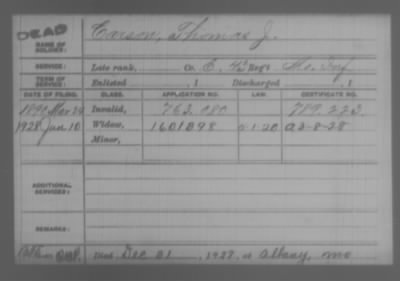 DEAD
NAME OF SOLDIER: Carson, Thomas J.
SERVICE: Late rank, Co. E, 43 Reg't Mo. Inf.
TERM OF SERVICE: Enlisted , 1 Discharged , 1
DATE OF FILING. CLASS. APPLICATION NO. LAW. CERTIFICATE NO.
1890 Mar 24 Invalid, 762.080 789.223
1928 Jan 10 Widow, 1601898 5-1-20 A2-8-28
Minor,
ADDITIONAL SERVICES:
REMARKS:
Died Dec 21, 1927, at Albany, Mo